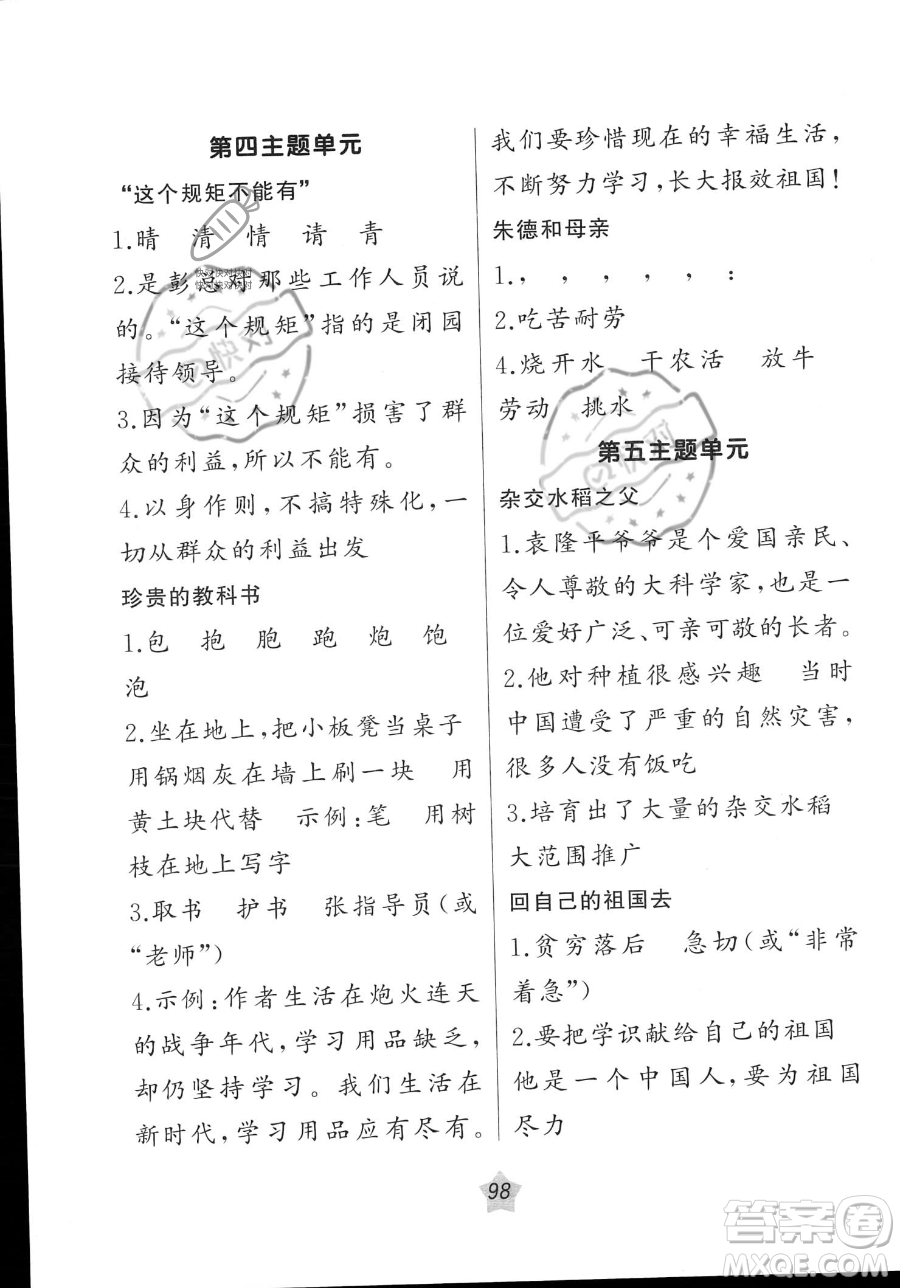 第四主题单元
“这个规矩不能有”
1.晴 清 情 请 青
2.是彭总对那些工作人员说
的。“这个规矩”指的是闭园
接待领导。
3.因为“这个规矩”损害了群
众的利益,所以不能有。
4.以身作则,不搞特殊化,一
切从群众的利益出发
珍贵的教科书
1.包 抱 胞 跑 炮 饱
泡
2.坐在地上,把小板凳当桌子
用锅烟灰在墙上刷一块 用
黄土块代替 示例:笔 用树
枝在地上写字
3.取书 护书 张指导员(或
“老师”)
4.示例:作者生活在炮火连天
的战争年代,学习用品缺乏,
却仍坚持学习。我们生活在
新时代,学习用品应有尽有。
我们要珍惜现在的幸福生活,
不断努力学习,长大报效祖国!
朱德和母亲
1., , , , , :
2.吃苦耐劳
4.烧开水 干农活 放牛
劳动 挑水
第五主题单元
杂交水稻之父
1.袁隆平爷爷是个爱国亲民、
令人尊敬的大科学家,也是一
位爱好广泛、可亲可敬的长者。
2.他对种植很感兴趣 当时
中国遭受了严重的自然灾害,
很多人没有饭吃
3.培育出了大量的杂交水稻
大范围推广
回自己的祖国去
1.贫穷落后 急切(或“非常
着急”)
2.要把学识献给自己的祖国
他是一个中国人,要为祖国
尽力
98
快对快对快对
快对快对快对
快对
快对
答案卷
MXQE.COM